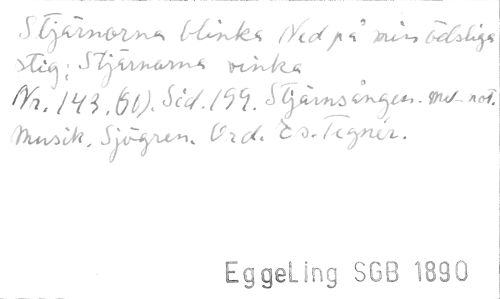 Stjärnorna blinka Ned på min ödsliga
stig; Stjärnorna vinka
Nr. 143, 61). Sid. 199. Stjärnsången. med not.
Musik. Sjögren. Ord. Es. Tegnér.
EggeLing SGB 1890